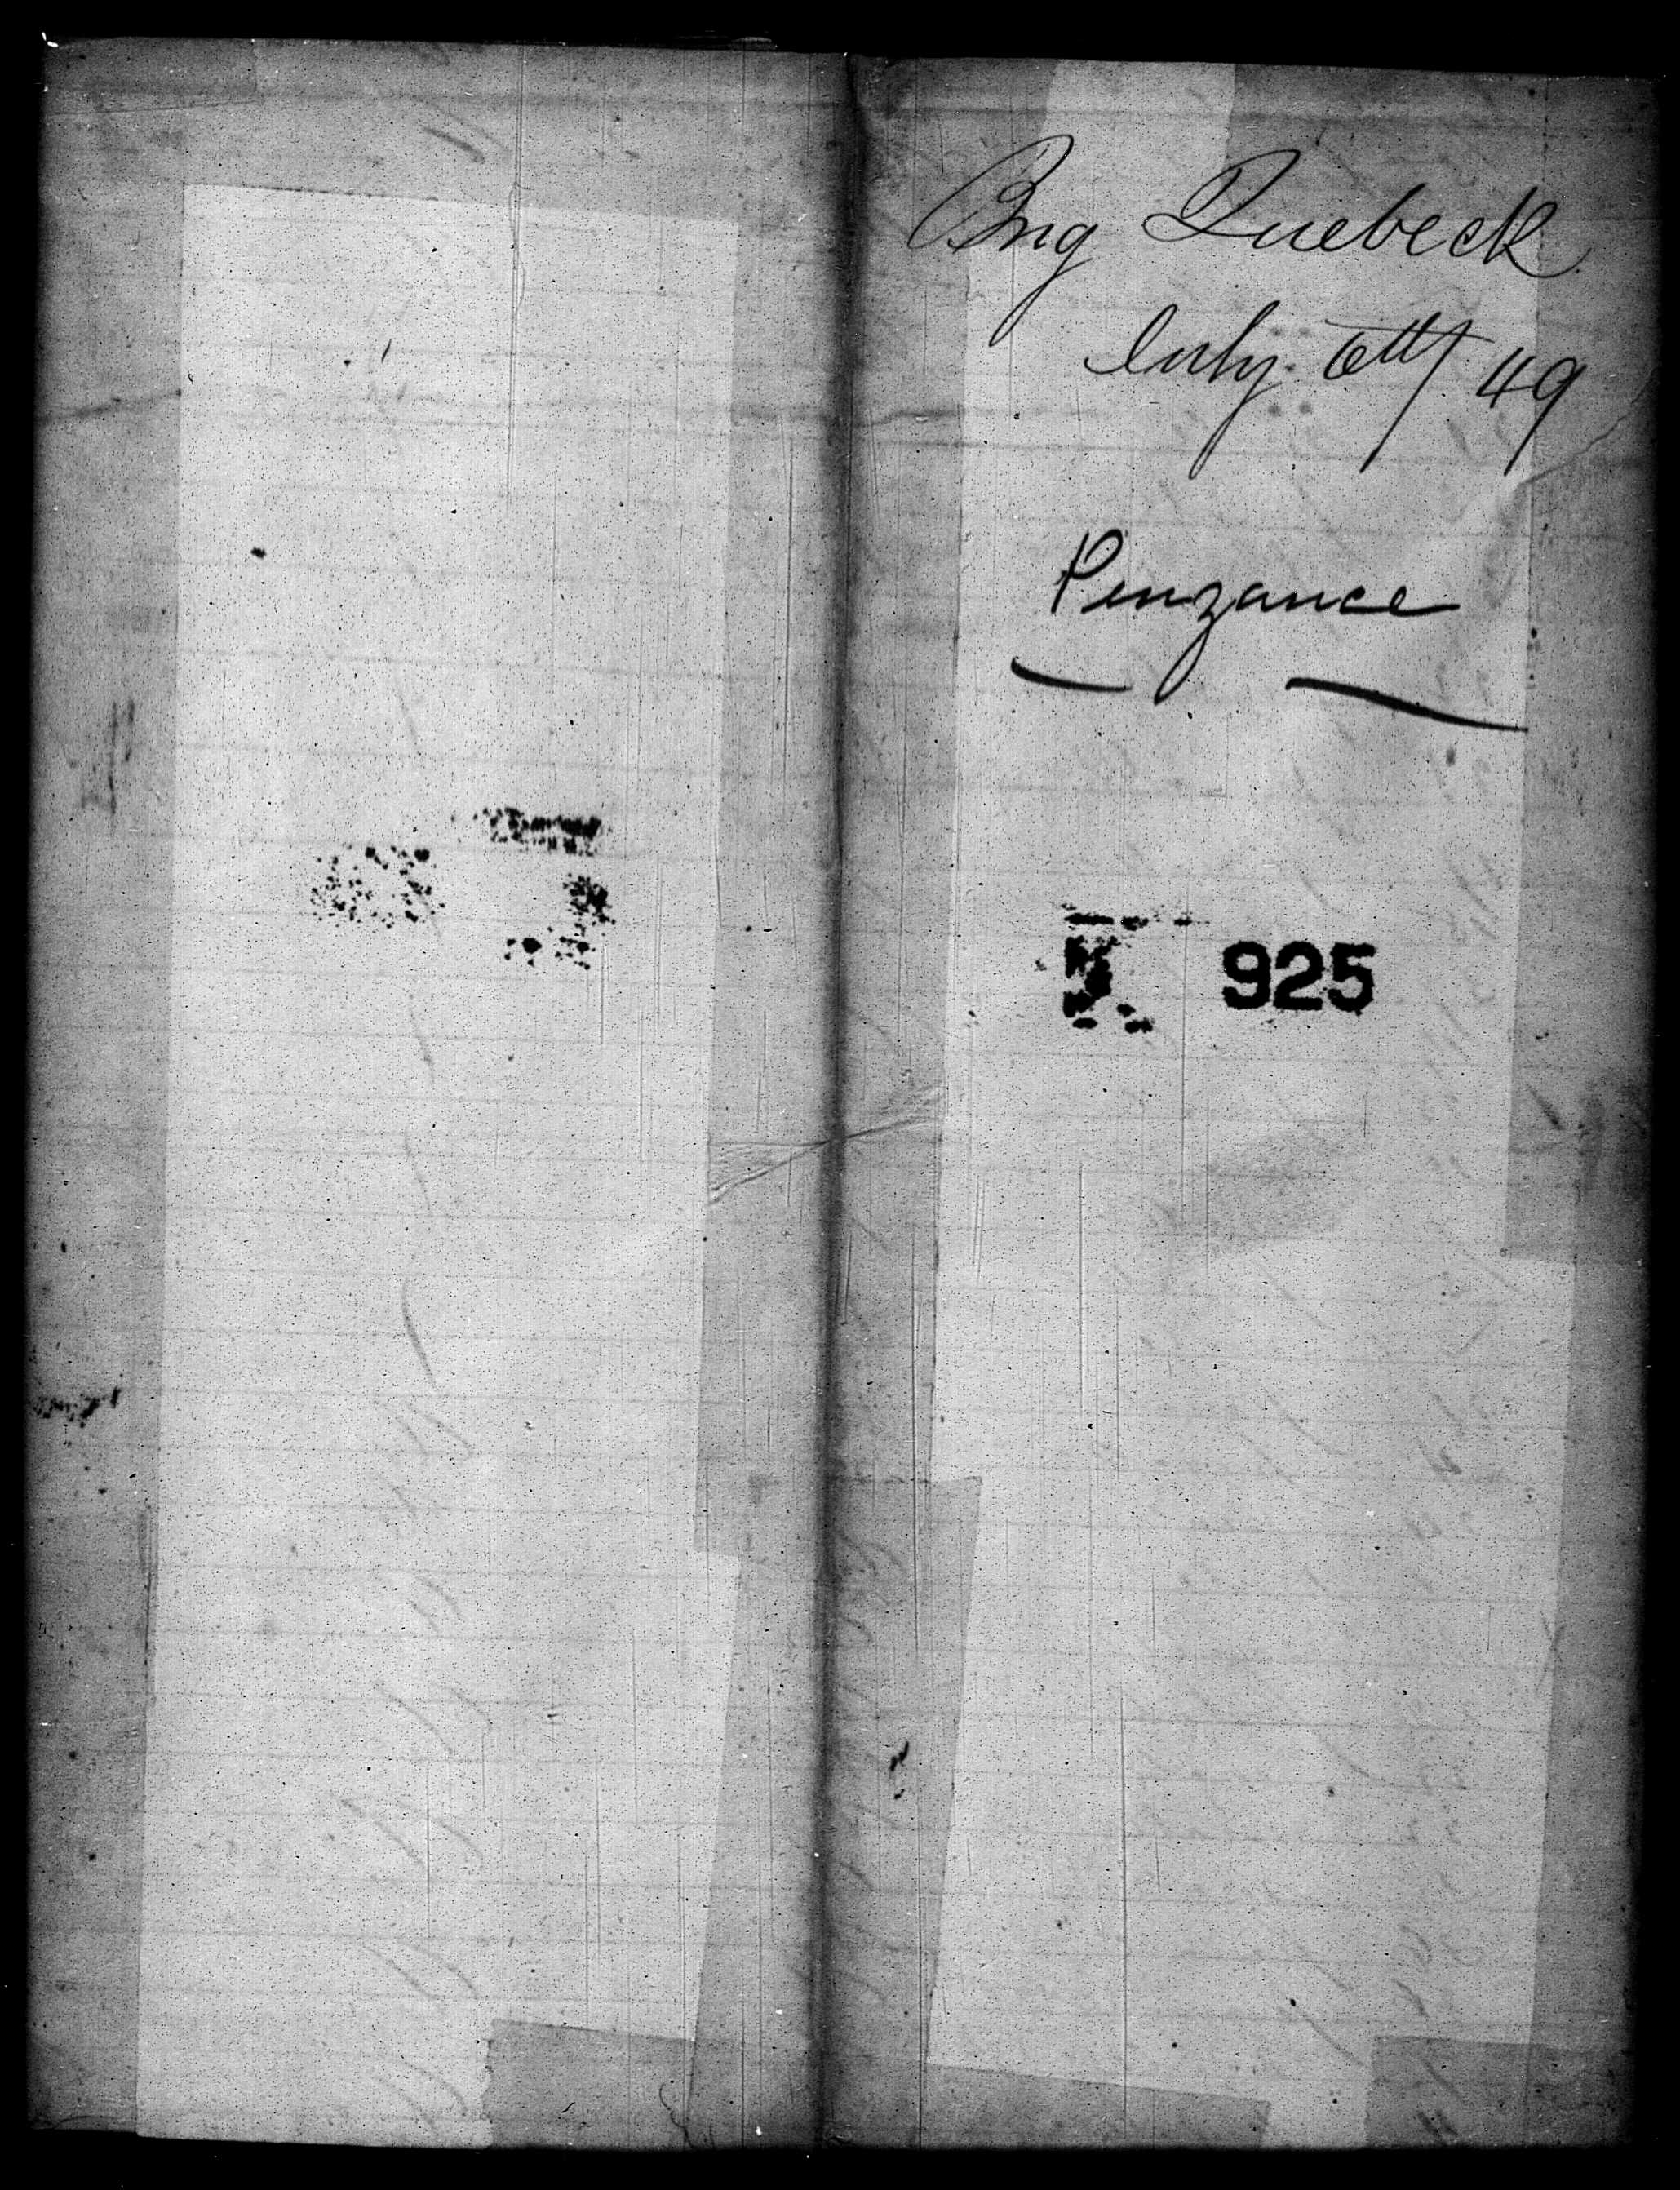 Brig Quebeck
July 6th/49
Penzance
925